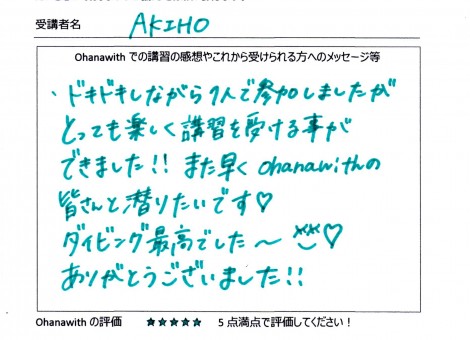 受講者名 AKIHO
Ohanawith での講習の感想やこれから受けられる方へのメッセージ等
、ドキドキしながら1人で参加しましたが
とっても楽しく講習を受ける事が
できました!! また早くohanawithの
皆さんと潜りたいです♡
ダイビング最高でした〜 ♡
ありがとうございました!!
Ohanawith の評価 ★★★★★ 5 点満点で評価してください!